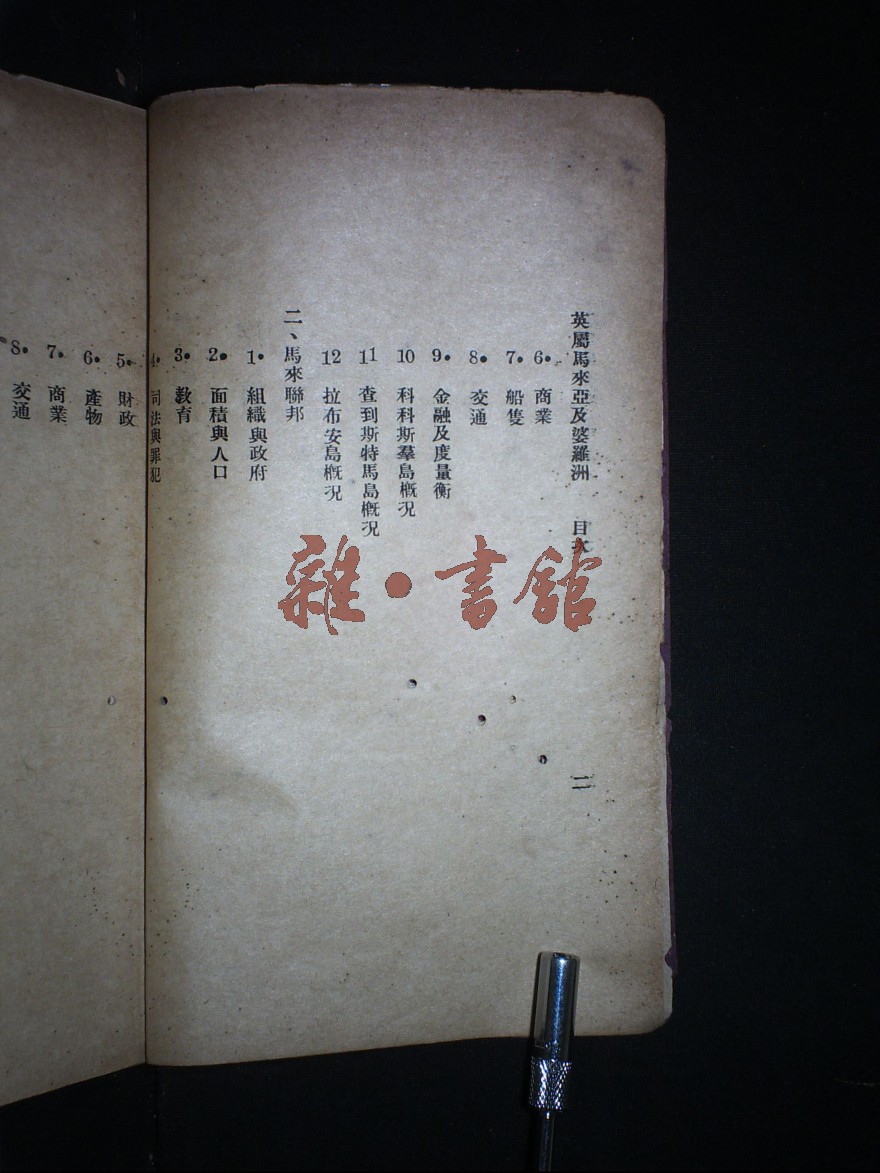 英屬馬來亞及婆羅洲 目次
6. 商業
7. 船隻
8. 交通
9. 金融及度量衡
10 科科斯羣島概況
11 查到斯特馬島概況
12 拉布安島概況
二、馬來聯邦
1. 組織與政府
2. 面積與人口
3. 教育
4. 司法與罪犯
5. 財政
6. 產物
7. 商業
8. 交通
二
雜·書館